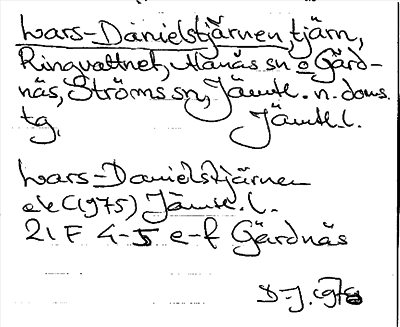 Lars-Danielstjärnen, tjärn,
Ringvattnet, Alanäs sn o Gärd-
näs, Ströms sn, Jämtl. n. doms.
tg. Jämtl. l.
Lars-Danielstjärnen
ek (1975) Jämtl. l.
21 F 4-5 e-f Gärdnäs
D-J. 1978